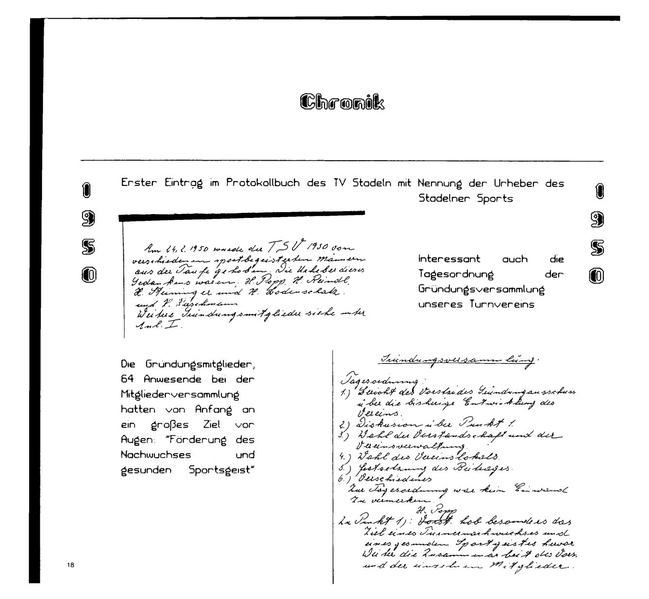 Chronik
1950
Erster Eintrag im Protokollbuch des TV Stadeln mit Nennung der Urheber des
Stadelner Sports
1950
Am 24.2.1950 wurde der TSV 1950 von
verschiedenen sportbegeisterten Männern
aus der Taufe gehoben. Die Urheber dieses
Gedankens waren, H. Popp, H. Reindl,
H. und H. Bodenschatz
und
Weitere Gründungsmitglieder siehe unter
Anl. I.
Interessant auch die
Tagesordnung der
Gründungsversammlung
unseres Turnvereins
Die Gründungsmitglieder,
64 Anwesende bei der
Mitgliederversammlung
hatten von Anfang an
ein großes Ziel vor
Augen: "Förderung des
Nachwuchses und
gesunden Sportsgeist"
Gründungsversammlung.
Tagesordnung:
1.) Bericht des Vorstandes Gründungsausschuss
über die bisherige Entwicklung des
Vereins.
2) Diskussion über Punkt 1.
3) Wahl der Vorstandschaft und der
Vereinsverwaltung.
4.) Wahl des Vereinslokals.
5.) Festsetzung des Beitrages.
6.) Verschiedenes
Zur Tagesordnung war kein Einwand
zu vermerken.
H. Popp
Zu Punkt 1): Vorst. hob besonders das
Ziel eines Turnernachwuchses und
eines gesunden Sportgeistes hervor
Weiter die Zusammenarbeit des Vors.
und der einzelnen Mitglieder.
18